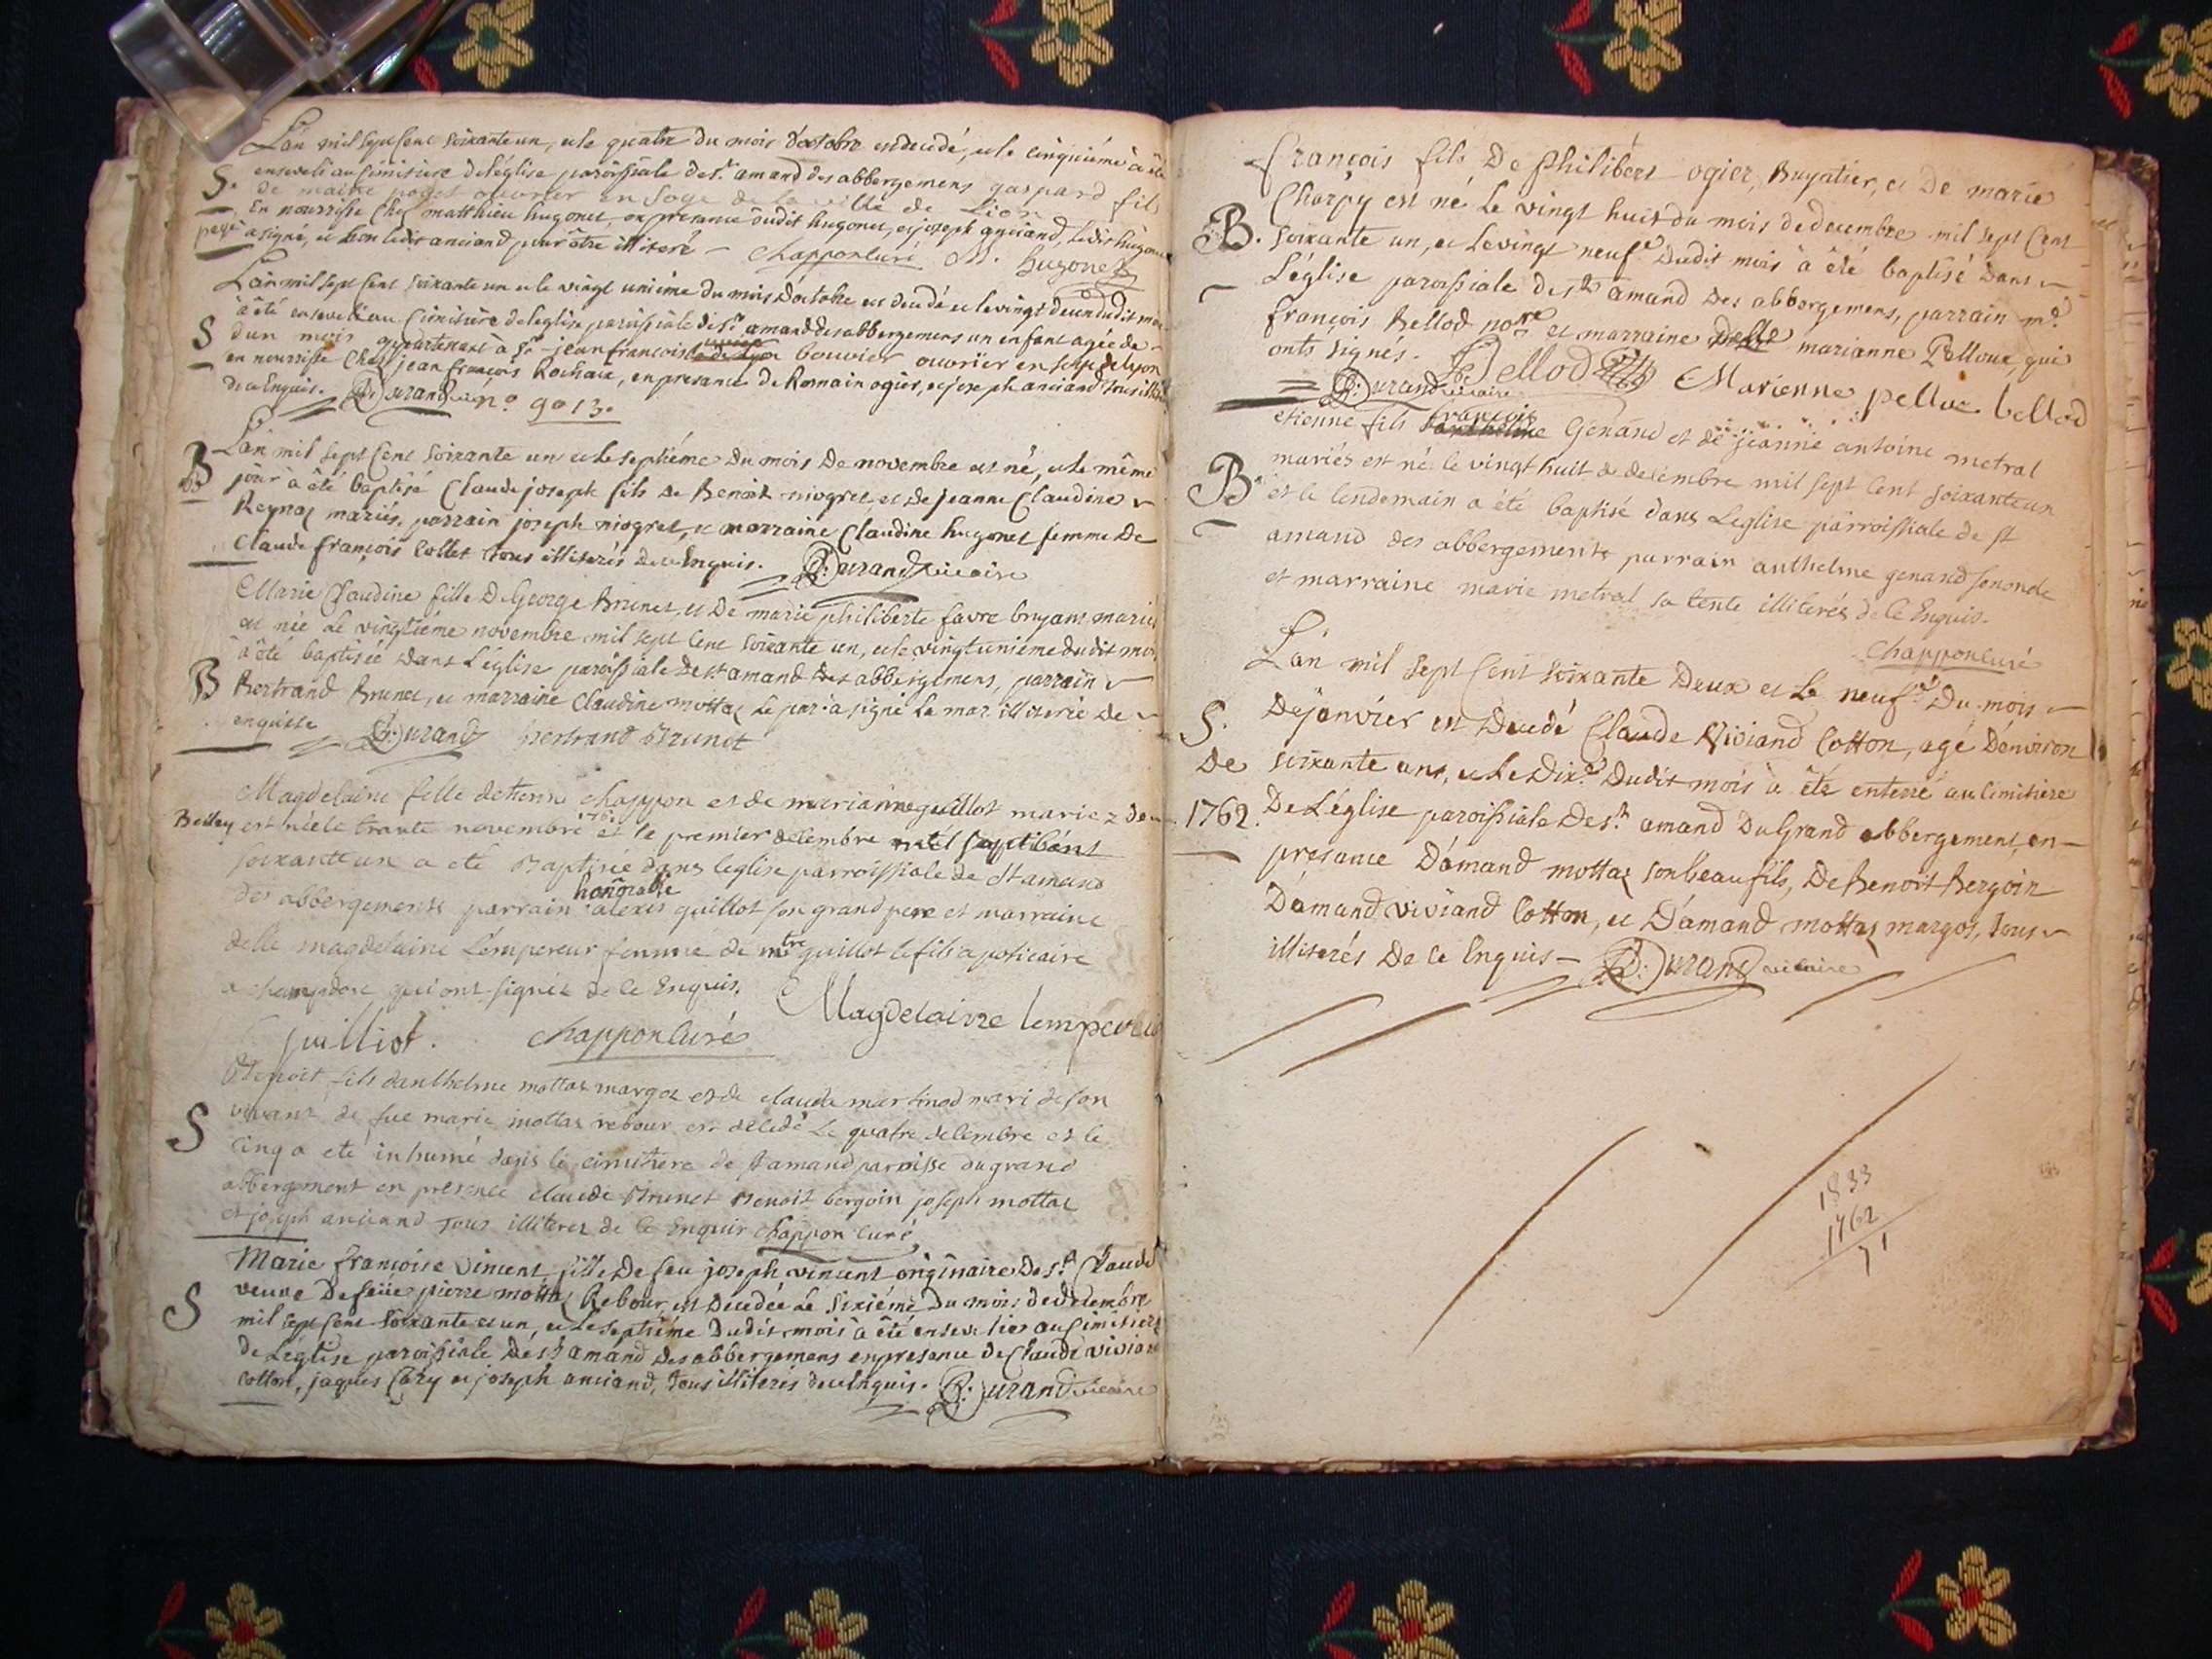 L'an mil sept cent soixante un, et le quatre du mois d'octobre est decédé, et le cinquiéme à été
S. enseveli au cimitiere de l'église paroissiale de st. amand des abbergemens gaspard fils
de maitre poget ouvrier en soye de la ville de Lion
en nourrisse chez matthieu hugonet, en presance dudit hugonet, et joseph anciand, ledit hugonet
payé à signé, et non ledit anciand pour être illiteré - chappon curé M. hugonet
L'an mil sept cent soixante un et le vingt uniéme du mois d'octobre est decedé et le vingt deux dudit mois
à été enseveli au cimitiere de l'eglise paroissiale de st amand des abbergemens un enfant agée de
S d'un mois appartenant à sr jean francois bouvier ouvrier en soye de lyon
en nourrisse chez jean françois Rochaix, en presance de Romain ogier, et joseph anciand tous illiterés
de ce enquis. Durand vicaire no. 9013.
L'an mil sept cent soixante un et le septiéme du mois de novembre est né, et le même
B jour à été baptisé Claude joseph fils de Benoit niogret, et de jeanne Claudine
Reynaz mariés, parrain joseph niogret, et marraine Claudine hugonet femme de
Claude françois Collet tous illiterés de ce enquis. Durand vicaire
Marie Claudine fille de George Brunet, et de marie philiberte favre bruyant mariés
est née le vingtiéme novembre mil sept cent soixante un, et le vingt uniéme dudit mois
à été baptisée dans l'église paroissiale de st amand des abbergemens, parrain
B Bertrand Brunet, et marraine Claudine mottaz le par. à signé la mar. illiterée de
enquisse Durand bertrand brunet
Magdelaine fille detienne chappon et de marianne guillot mariez de
Belley est née le trante novembre 1761 et le premier decembre mil sept cent
soixante un a eté Baptisée dans leglise parroissiale de st amand
des abbergements parrain honnorable alexis guillot son grand pere et marraine
delle magdelaine Lempereur femme de mtre guillot le fils apoticaire
a champdore qui ont signez de ce enquis.
Magdelaine lempereur
guilliot. chappon curé
Benoit fils danthelme mottaz margoz et de claude martinod mari de son
S vivant de fue marie mottaz rebour est decedé le quatre decembre et le
cinq a eté inhumé dans le cimitiere de st amand paroisse du grand
abbergement en presence claude Brunet Benoit bergoin joseph mottaz
et joseph anciand tous illiterez de ce enquis chappon curé
Marie françoise vincent, fille de feu joseph vincent originaire de st. Claude
veuve de feüe pierre mottaz Rebour, est decedée le sixiéme du mois de decembre
S mil sept cent soixante et un, et le septiéme dudit mois à été ensevelie au cimitiere
de l'église paroissiale de st amand des abbergemens en presance de Claude viviand
cotton, jaques Cary et joseph anciand, tous illiterés de ce enquis. Durand vicaire
françois fils de philibert ogier, Buyatier, et de marie
Charpy est né le vingt huit du mois de decembre mil sept cent
B. soixante un, et le vingt neufe dudit mois à été baptisé dans
l'église paroissiale de st amand des abbergemens, parrain me.
françois Bellod nore et marraine delle marianne Pelloux, qui
onts signés. Bellod Marienne pellue bellod
Durand vicaire
etienne fils françois Genand et de jeanne antoine metral
mariés est né le vingt huit de decembre mil sept cent soixante un
B et le lendemain a été baptisé dans Leglise parroissiale de st
amand des abbergements parrain anthelme genand son oncle
et marraine marie metral sa tente illiterés de ce Enquis.
chappon curé
L'an mil sept cent soixante deux et le neufe. du mois
S. de janvier est decedé Claude Viviand Cotton, agé d'environ
de soixante ans, et le dixe. dudit mois à été enterré au cimitiere
1762. de L'église paroissiale de st. amand du Grand abbergement, en
presance d'amand mottaz son beau fils, de Benoit Bergoin
d'amand viviand Cotton, et d'amand mottaz margos, tous
illiterés de ce enquis - Durand vicaire
1833
1762
71